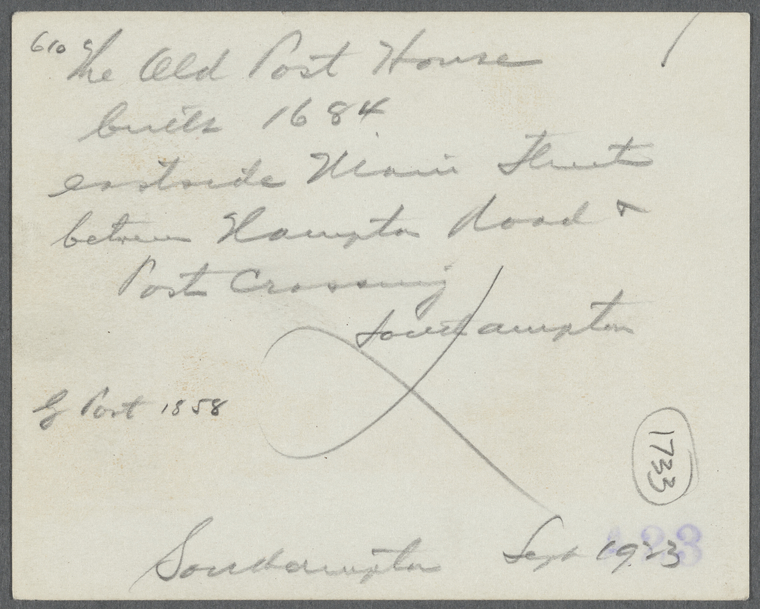 610
The Old Post House
built 1684
eastside Main Street
between Hampton Road &
Post Crossing
Southampton
G Post 1858
1733
Southampton Sept 1923